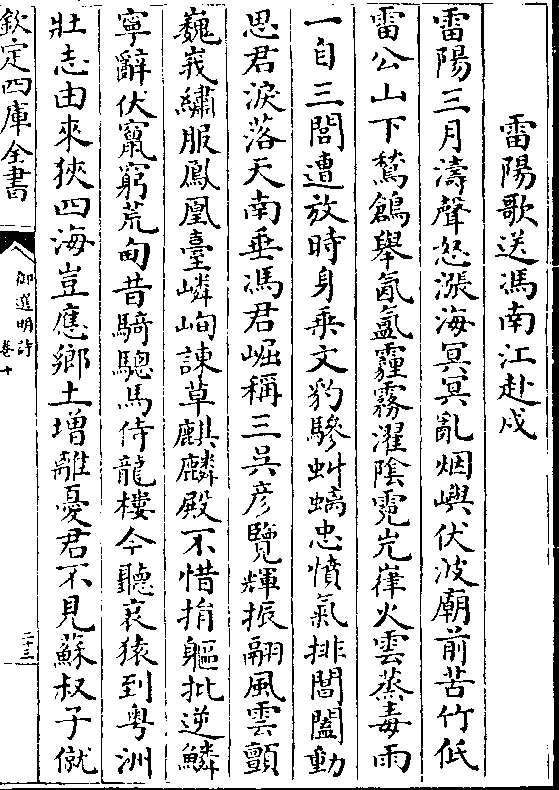 雷陽歌送馮南江赴戍
雷陽三月濤聲怒漲海冥冥亂烟嶼伏波廟前苦竹低
雷公山下鷔鶬舉氤氳霾霧濯陰霓岝嵂火雲蒸毒雨
一自三閭遭放時身乗文豹驂虯螭忠憤氣排閶闔動
思君淚落天南垂馮君崛稱三吳彦覽輝振翮風雲顫
巍峩繡服鳳凰臺嶙峋諫草麒麟殿不惜捐軀批逆鱗
寧辭伏竄窮荒甸昔騎驄馬侍龍樓今聽哀猿到粤洲
壯志由來狹四海豈應鄉土增離憂君不見蘇叔子僦
欽定四庫全書
御選明詩
卷十
二十三